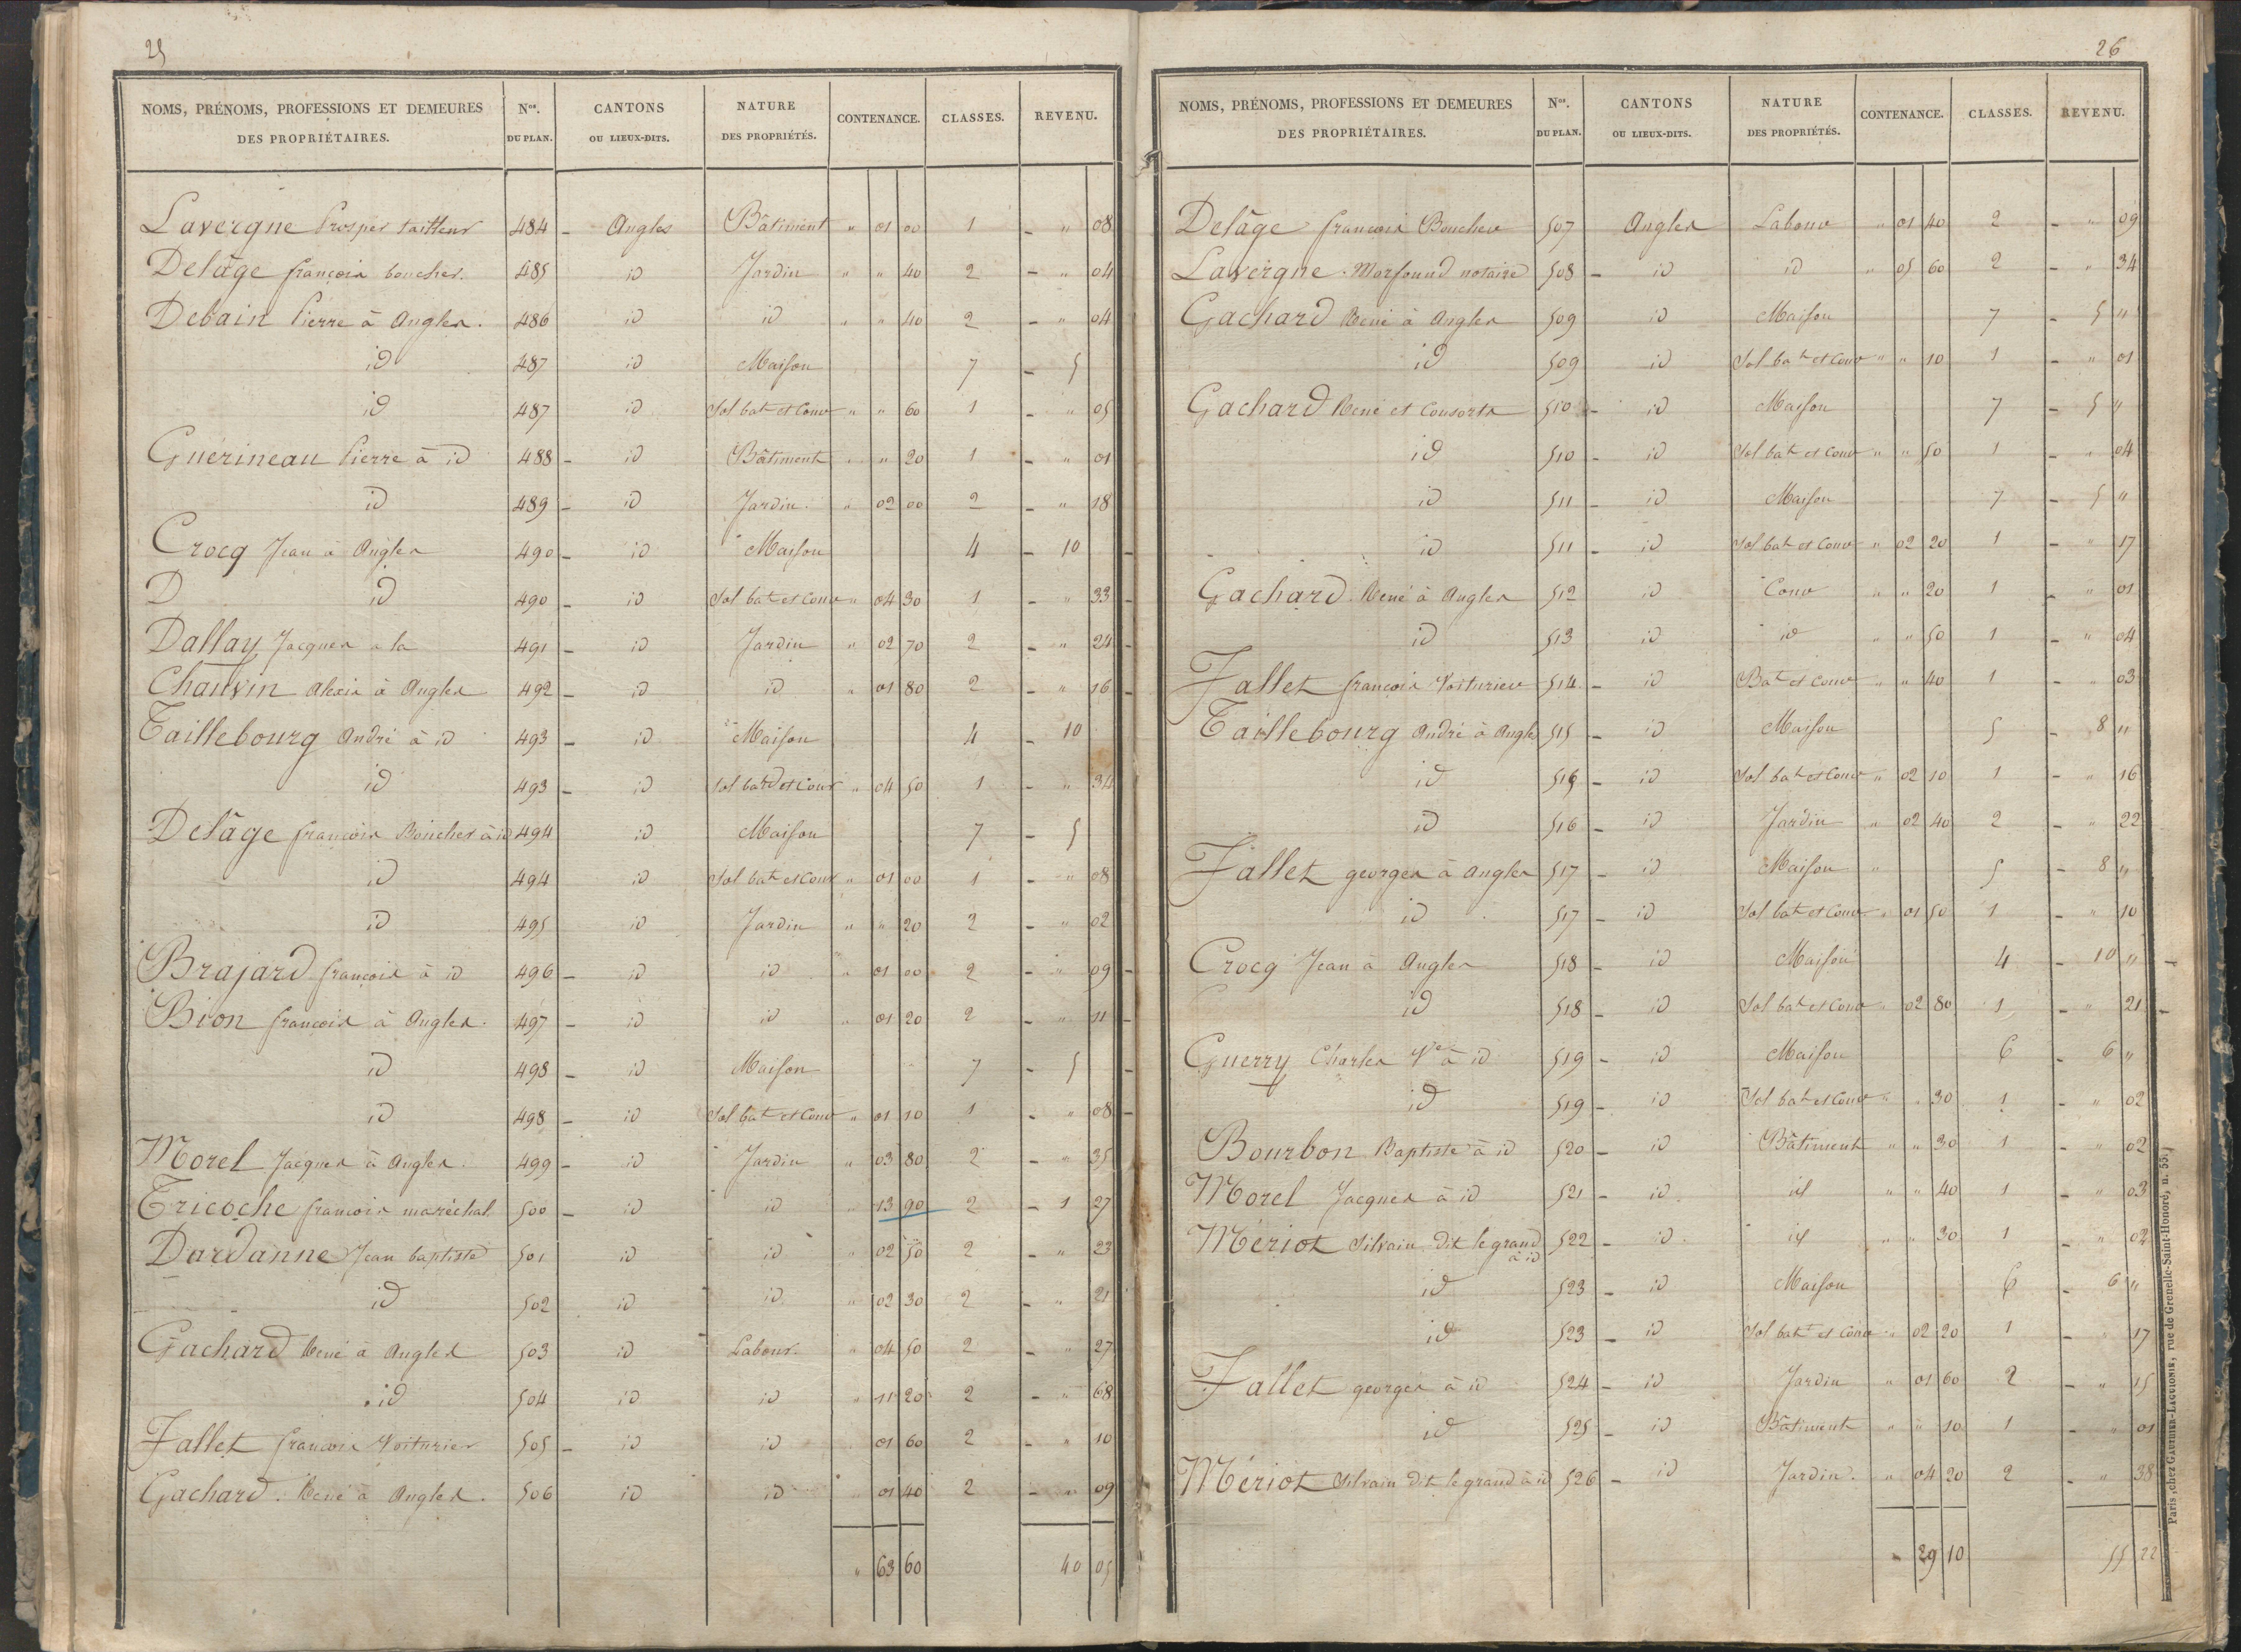 25
NOMS, PRÉNOMS, PROFESSIONS ET DEMEURES DES PROPRIÉTAIRES. | Nos. DU PLAN. | CANTONS OU LIEUX-DITS. | NATURE DES PROPRIÉTÉS. | CONTENANCE. | CLASSES. | REVENU.
Lavergne Prosper tailleur 484 - Angles Bâtiment " 01 00 1 - " 08
Delâge françois boucher. 485 id Jardin " " 40 2 - " 04
Debain Pierre à Angles. 486 id id " " 40 2 - " 04
id 487 id Maison 7 - 5
id 487 id Sol bat et Cour " " 60 1 - " 05
Guérineau Pierre à id 488 - id Bâtiment " " 20 1 - " 01
id 489 - id Jardin. " 02 00 2 - " 18
Crocq Jean à Angles 490 - id Maison 4 - 10
D id 490 - id Sol bat et Cour " 04 30 1 - " 33
Dallay Jacques a la 491 - id Jardin " 02 70 2 - " 24
Chauvin Alexis à Angles 492 - id id " 01 80 2 - " 16
Taillebourg André à id 493 - id Maison 4 - 10
id 493 - id Sol bat et Cour " 04 50 1 - " 34
Delâge françois Boucher à id 494 id Maison 7 - 5
id 494 id Sol bat et Cour " 01 00 1 - " 08
id 495 id Jardin " " 20 2 - " 02
Brajard françois à id 496 - id id " 01 00 2 - " 09
Bion françois à Angles. 497 - id id " 01 20 2 - " 11
id 498 - id Maison 7 - 5
id 498 - id Sol bat et Cour " 01 10 1 - " 08
Morel Jacques à Angles. 499 - id Jardin " 03 80 2 - " 35
Tricoche françois maréchal. 500 - id id " 13 90 2 - 1 27
Dardanne Jean baptiste 501 id id " 02 50 2 - " 23
id 502 id id " 02 30 2 - " 21
Gachard René à Angles 503 id Labour. " 04 50 2 - " 27
id 504 id id " 11 20 2 - " 68
Fallet françois Voiturier 505 - id id 01 60 2 - " 10
Gachard. René à Angles. 506 id id " 01 40 2 - " 09
" 63 60 40 05
26
NOMS, PRÉNOMS, PROFESSIONS ET DEMEURES DES PROPRIÉTAIRES. | Nos. DU PLAN. | CANTONS OU LIEUX-DITS. | NATURE DES PROPRIÉTÉS. | CONTENANCE. | CLASSES. | REVENU.
Delâge françois Boucher 507 Angles Labour " 01 40 2 - " 09
Lavergne. Marfound notaire 508 - id id " 05 60 2 - " 34
Gachard René à Angles 509 id Maison 7 - 5 "
id 509 id Sol bat et Cour " " 10 1 - " 01
Gachard René et Consorts 510 - id Maison 7 - 5 "
id 510 - id Sol bat et Cour " " 50 1 - " 04
id 511 - id Maison 7 - 5 "
id 511 - id Sol bat et Cour " 02 20 1 - " 17
Gachard. René à Angles 512 id Cour " " 20 1 - " 01
id 513 id id " " 50 1 - " 04
Fallet françois Voiturier 514 - id Bat et Cour " " 40 1 - " 03
Taillebourg André à Angle 515 - id Maison 5 - 8 "
id 515 - id Sol bat et Cour " 02 10 1 - " 16
id 516 - id Jardin " 02 40 2 - " 22
Fallet georges à Angles 517 - id Maison " 5 - 8 "
id 517 - id Sol bat et Cour " 01 50 1 - " 10
Crocq Jean à Angles 518 - id Maison 4 - 10 "
id 518 - id Sol bat et Cour " 02 80 1 - " 21
Guerry Charles Ve à id 519 - id Maison 6 - 6 "
id 519 - id Sol bat et Cour " " 30 1 - " 02
Bourbon Baptiste à id 520 - id Bâtiment " " 30 1 - " 02
Morel Jacques à id 521 - id id " " 40 1 - " 03
Mériot Silvain dit le grand à id 522 - id id " " 30 1 - " 02
id 523 - id Maison 6 - 6 "
id 523 - id Sol bat et Cour " 02 20 1 - " 17
Fallet georges à id 524 - id Jardin " 01 60 2 - " 15
id 525 - id Bâtiment " " 10 1 - " 01
Mériot Silvain dit le grand à id 526 - id Jardin. " 04 20 2 - " 38
" 29 10 55 22
Paris, chez GAUTHIER-LAGUIONIE, rue de Grenelle-Saint-Honoré, n. 55.